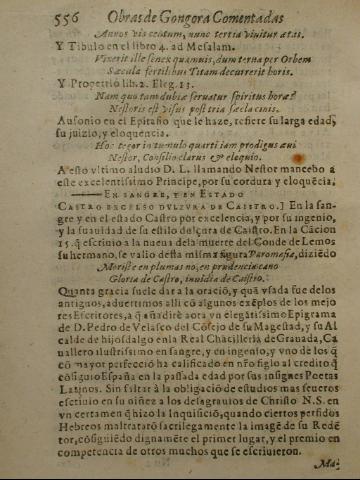 556 Obras de Gongora Comentadas
Annos vis centum, nunc tertia vivitur ætas.
Y Tibulo en el libro 4. ad Mesalam.
Vixerit ille senex quamuis, dum terna per Orbem
Sæcula fertilibus Titam decurrerit horis.
Y Propertio lib. 2. Eleg. 13.
Nam quo tam dubiæ seruatur spiritus horæ?
Nestoris est visus post tria sæcla cinis.
Ausonio en el Epitafio que le haze, refiere su larga edad,
su juizio, y eloquencia.
Hoc tegor in tumulo quarti iam prodigus æui
Nestor, Consilio clarus & eloquio.
A esto vltimo aludio D. L. llamando Nestor mancebo a
este excelentissimo Principe, por su cordura y eloquẽcia.
EN SANGRE, Y EN ESTADO
CASTRO EXCELSO DVLZVRA DE CAISTRO.] En la san-
gre y en el estado Castro por excelencia, y por su ingenio,
y la suauidad de su estilo dulçura de Caistro. En la Cãcion
15. q̃ escriuio a la nueua de la muerte del Conde de Lemos
su hermano, se valio desta misma figura Paromasia, diziẽdo
Moriste en plumas no, en prudencia cano
Gloria de Castro, inuidia de Caistro.
Quanta gracia suele dar a la oraciõ, y quã vsada fue de los
antiguos, aduertimos alli cõ algunos exẽplos de los mejo
res Escritores, a q̃ añadirè aora vn elegãtissimo Epigrama
de D. Pedro de Velasco del Cõsejo de su Magestad, y su Al
calde de hijosdalgo en la Real Chãcilleria de Granada, Ca
uallero ilustrissimo en sangre, y en ingenio, y vno de los q̃
cõ mayor perfecciõ ha calificado en nr̃o siglo al credito q̃
cõsiguio España en la passada edad por sus insignes Poetas
Latinos. Sin faltar à la obligaciõ de estudios mas seueros
escriuio en su niñez a los desagrauios de Christo N.S. en
vn certamen q̃ hizo la Inquisiciõ, quando ciertos perfidos
Hebreos maltratarõ sacrilegamente la imagẽ de su Redẽ
tor, cõsiguiẽdo dignamẽte el primer lugar, y el premio en
competencia de otros muchos que se escriuieron.